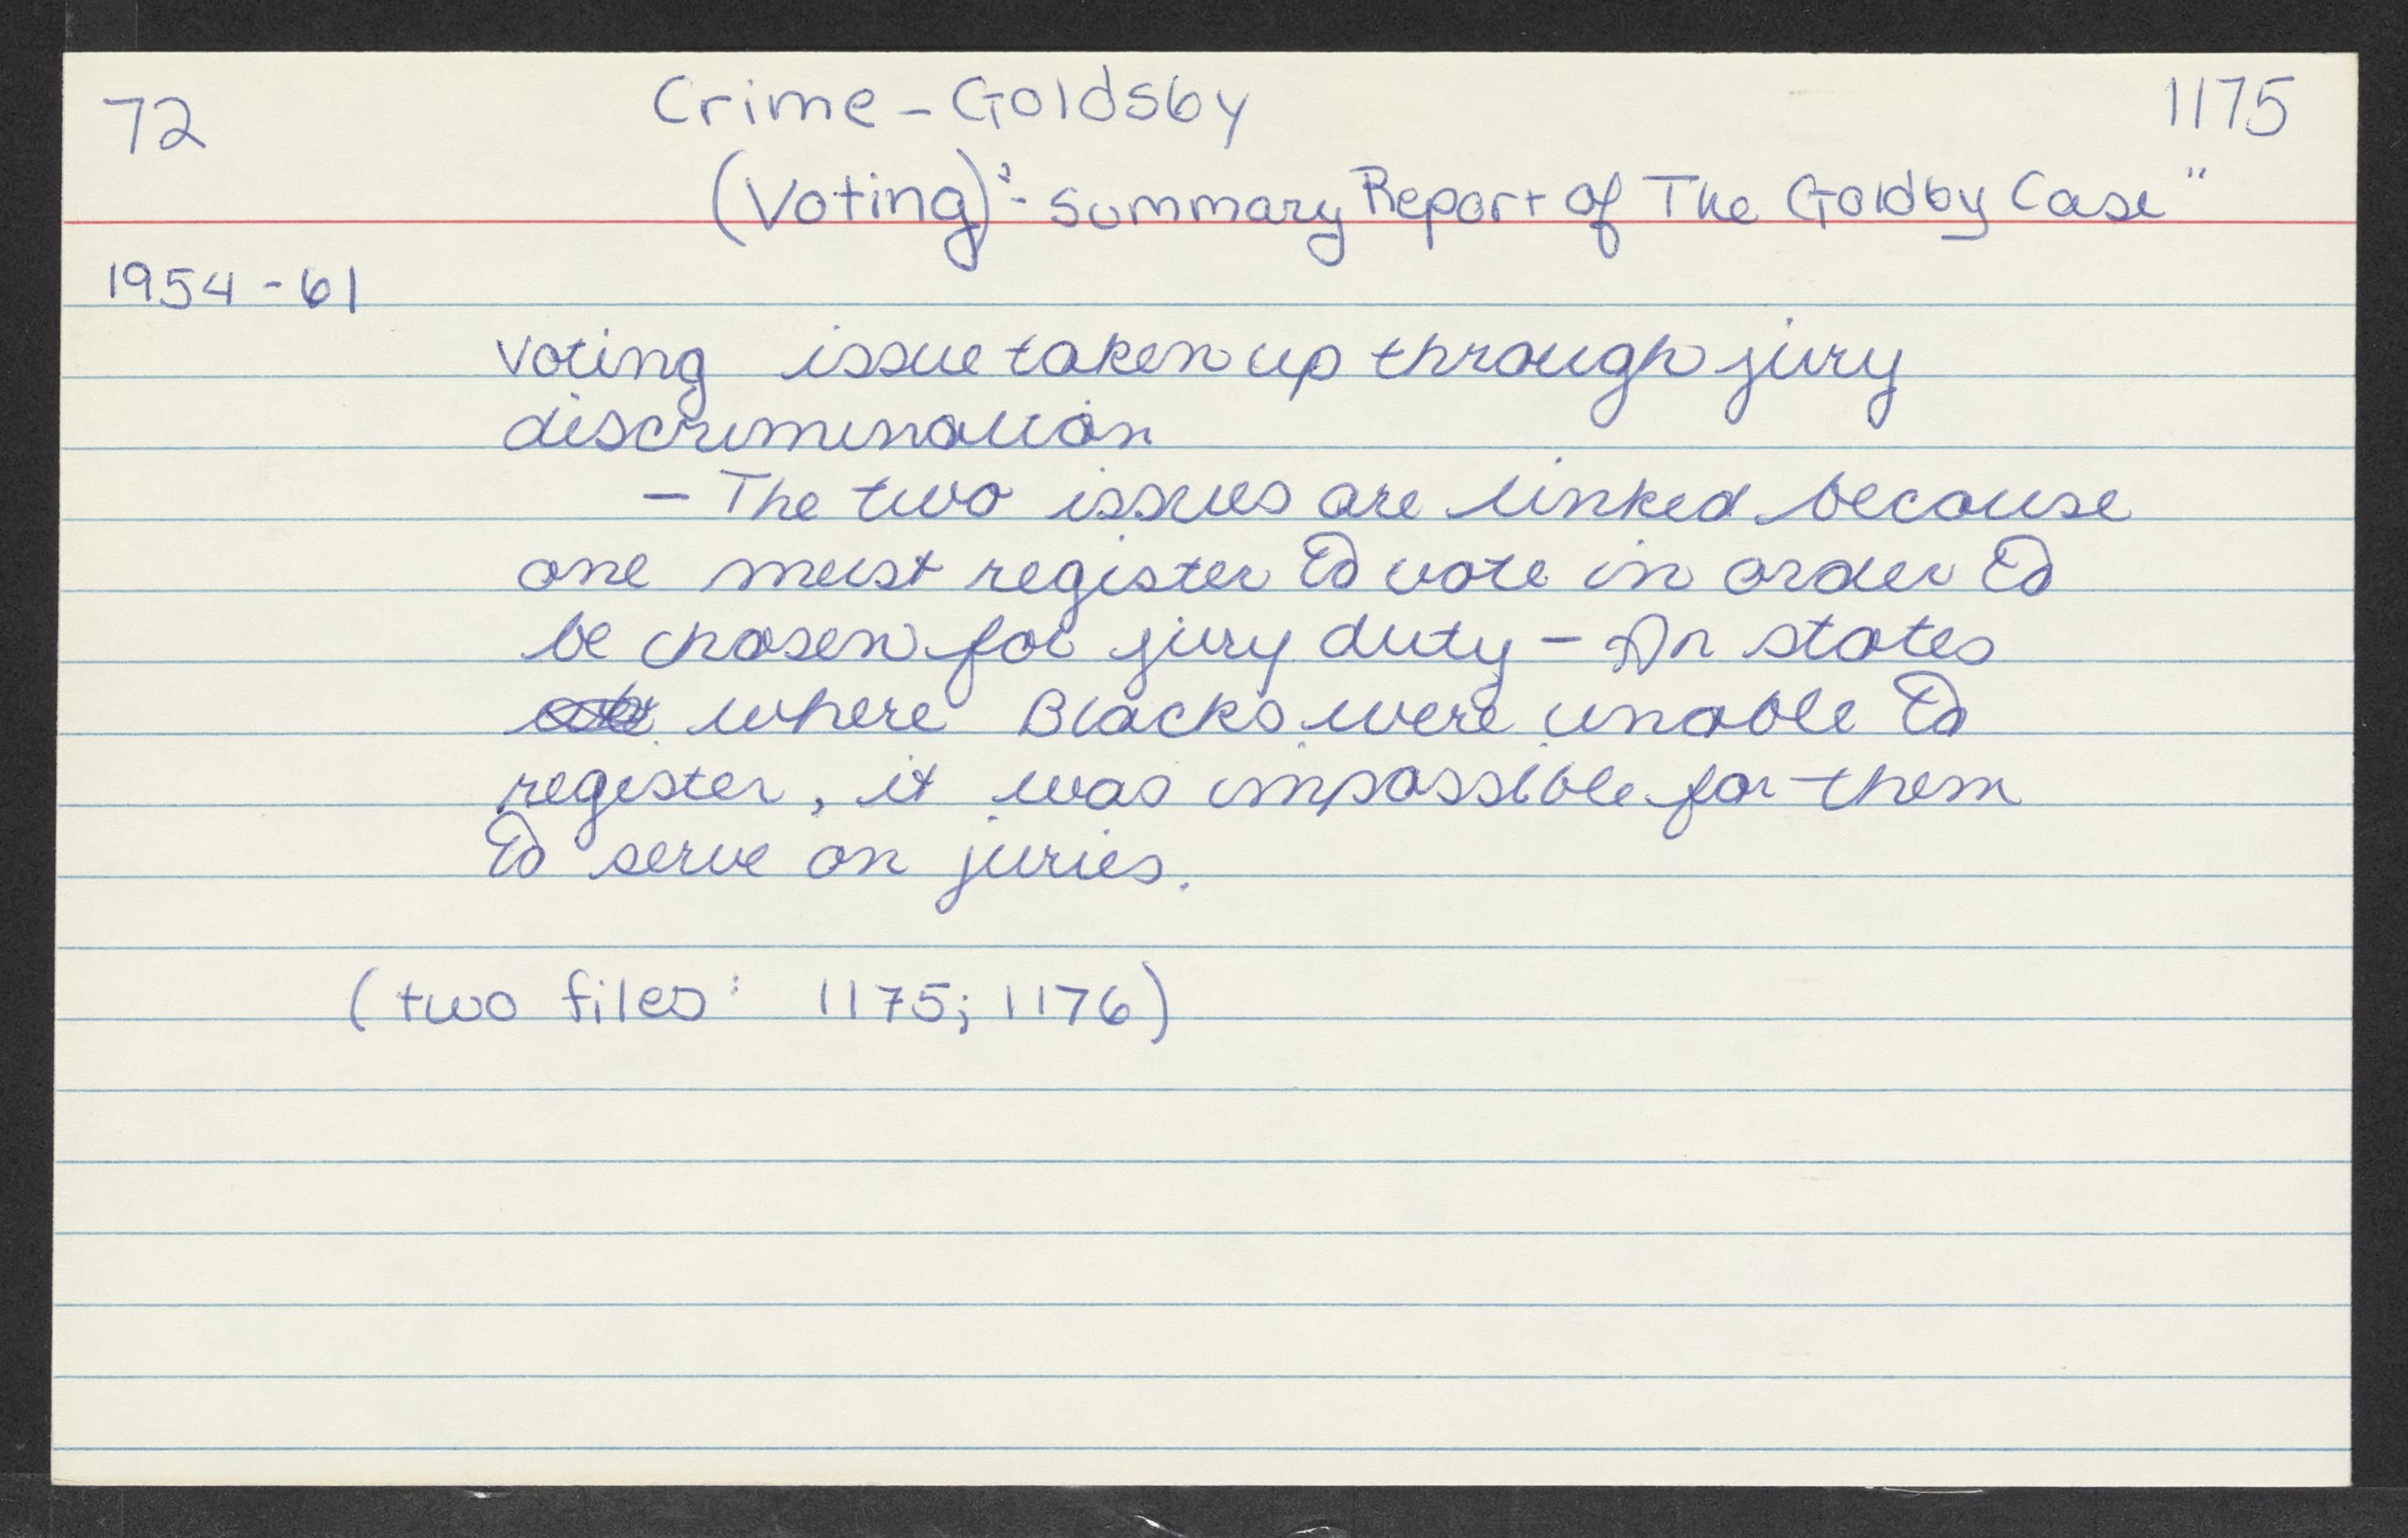 72 Crime - Goldsby 1175
(Voting): - Summary Report of The Goldby Case"
1954 - 61
Voting issue taken up through jury
discrimination
- The two issues are linked because
one must register to vote in order to
be chosen for jury duty - In states
where Blacks were unable to
register, it was impossible for them
to serve on juries.
(two files: 1175; 1176)